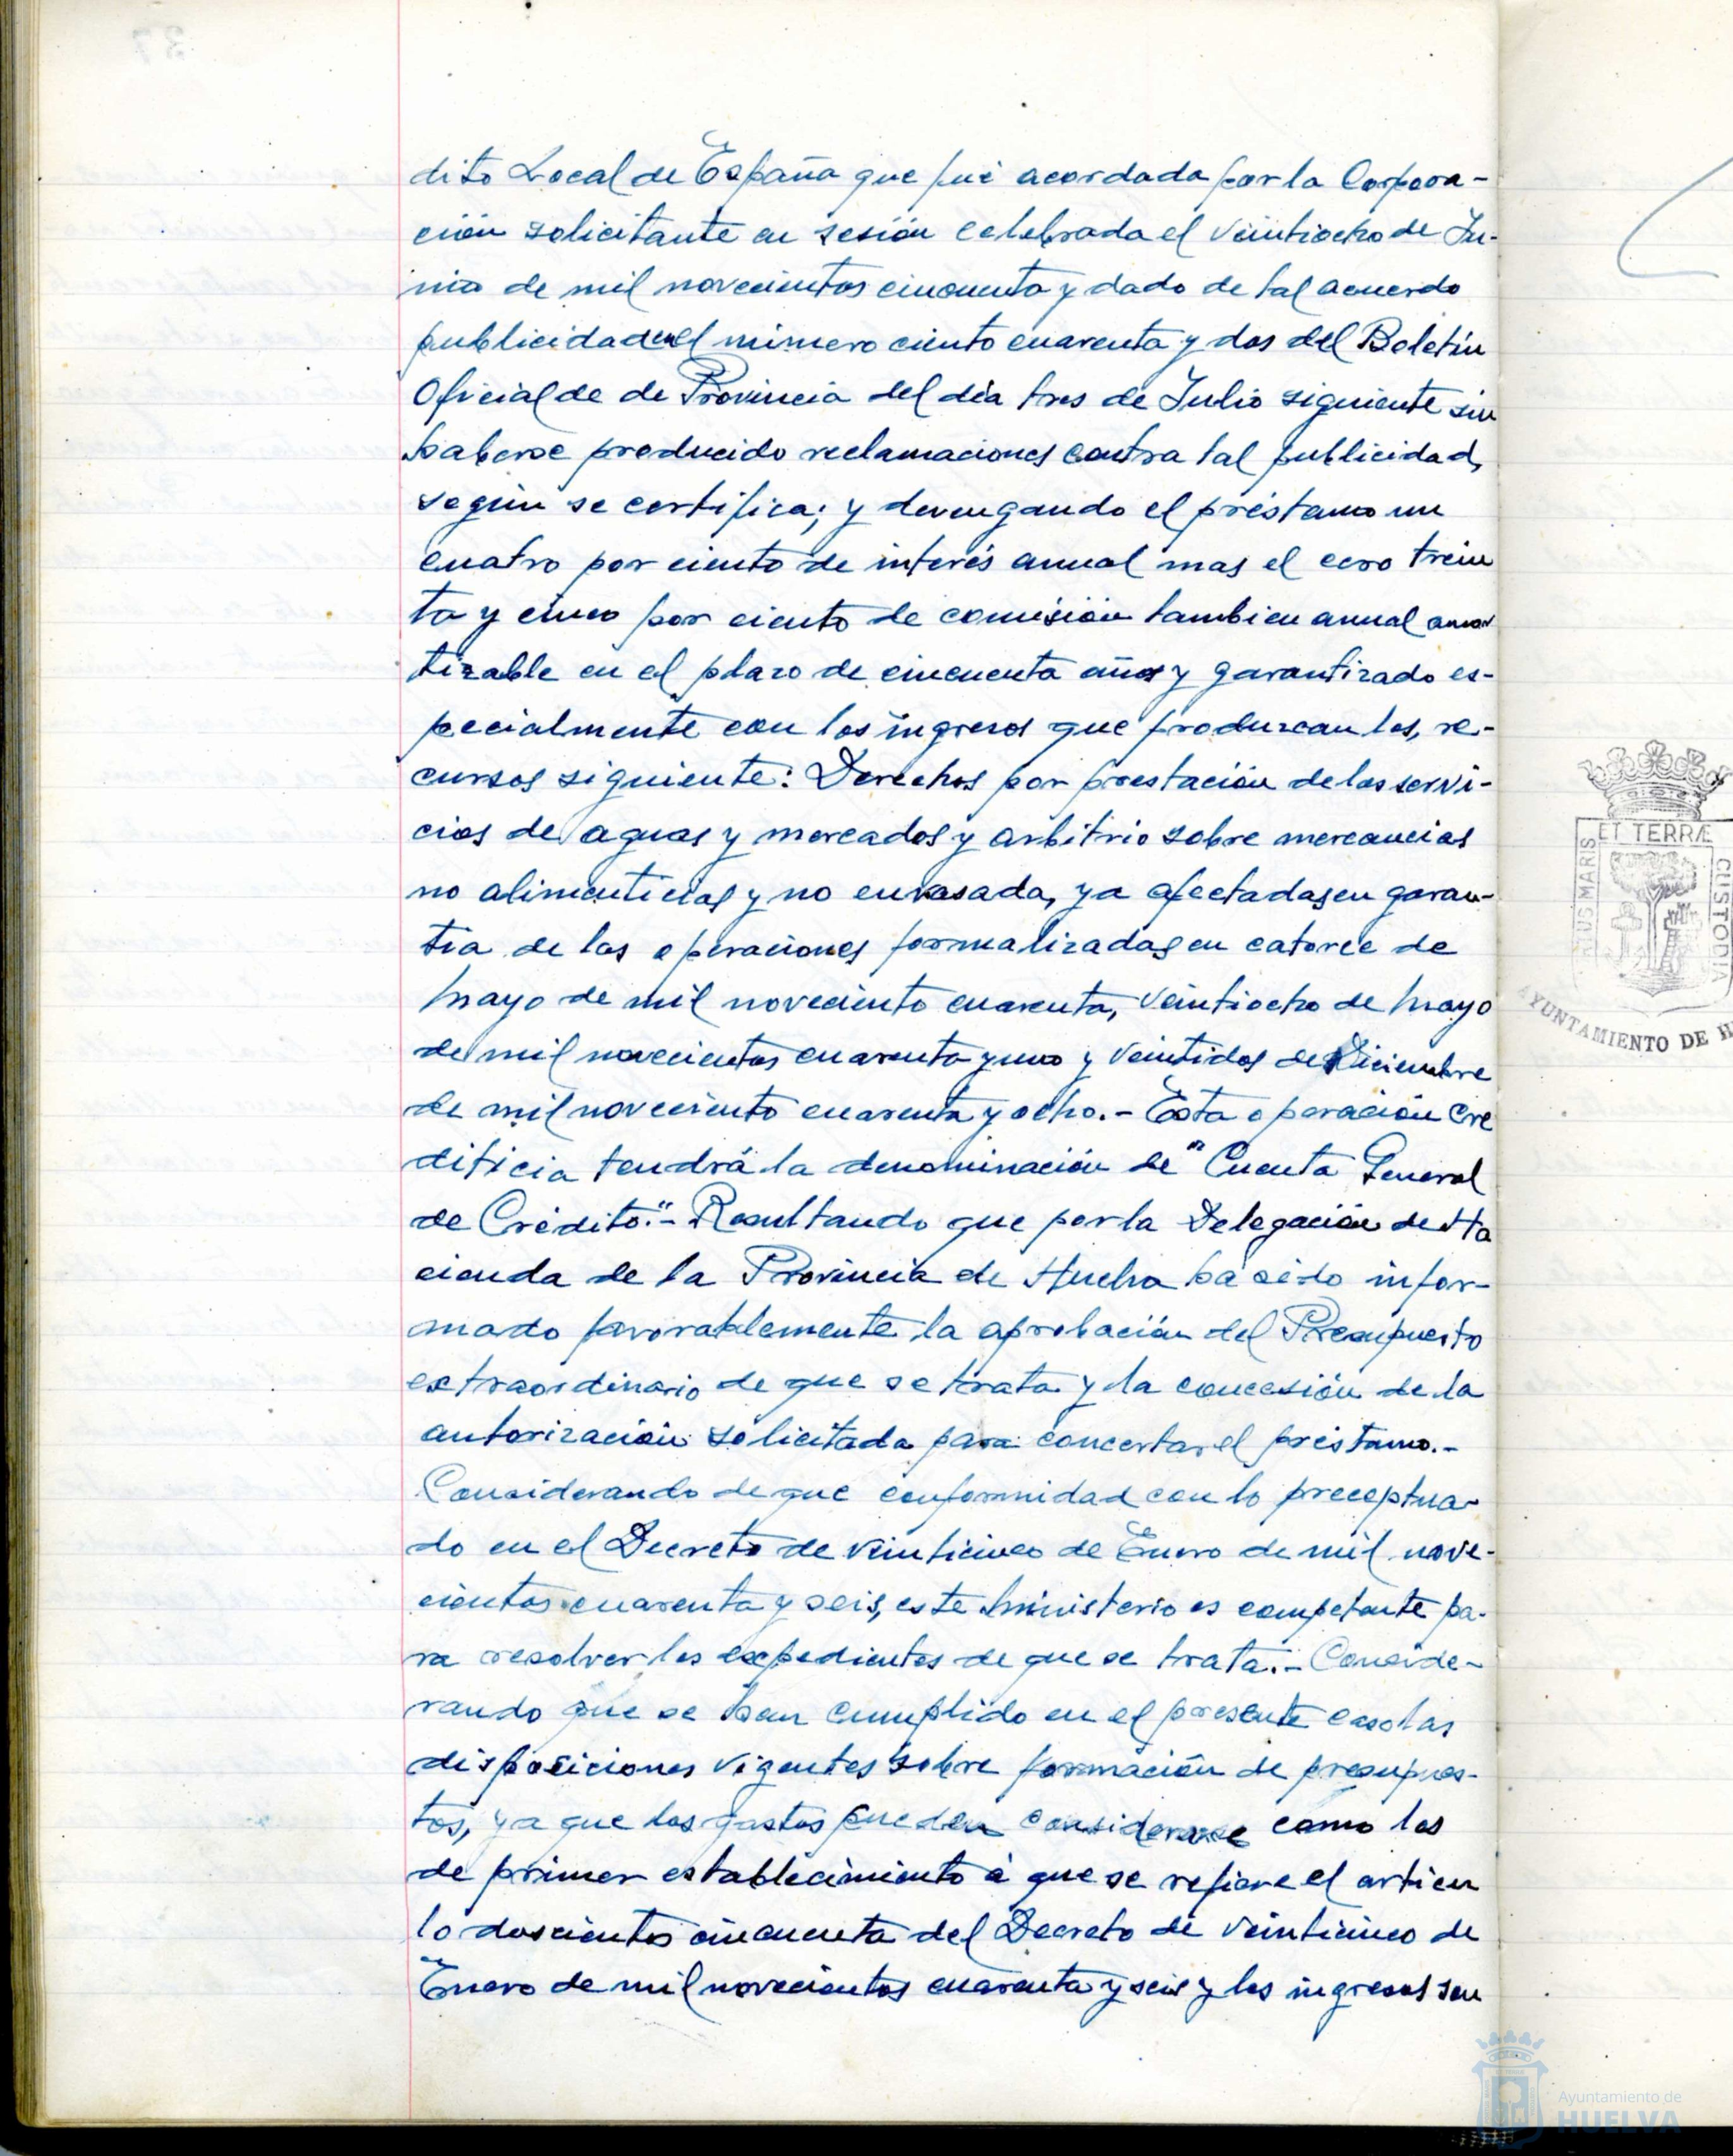 dito Local de España que fué acordada por la Corpora-
ción solicitante en sesión celebrada el veintiocho de Ju-
nio de mil novecientos cincuenta y dado de tal acuerdo
publicidad en el número ciento cuarenta y dos del Boletín
Oficial de de Provincia del día tres de Julio siguiente sin
haberse producido reclamaciones contra tal publicidad,
según se certifica; y devengando el préstamo un
cuatro por ciento de interés anual mas el cero trein
ta y cinco por ciento de comisión tambien anual amor
tizable en el plazo de cincuenta años y garantizado es-
pecialmente con los ingresos que produzcan los, re-
cursos siguiente: Derechos por prestación de los servi-
cios de aguas y mercados y arbitrio sobre mercancias
no alimenticias y no envasada, ya afectadas en garan-
tia de las operaciones formalizadas en catorce de
Mayo de mil noveciento cuarenta, veintiocho de Mayo
de mil novecientos cuarenta y uno y veintidos de Diciembre
de mil noveciento cuarenta y ocho.- Esta operación cre
diticia tendrá la denominación de "Cuenta General
de Crédito".- Resultando que por la Delegación de Ha
cienda de la Provincia de Huelva ha sido infor-
mado favorablemente la aprobación del Presupuesto
extraordinario de que se trata y la concesión de la
autorización solicitada para concertar el préstamo.-
Considerando de que conformidad con lo preceptua-
do en el Decreto de veinticinco de Enero de mil nove-
cientos cuarenta y seis, este Ministerio es competente pa-
ra resolver los expedientes de que se trata.- Conside-
rando que se han cumplido en el presente caso las
disposiciones vigentes sobre formación de presupues-
tos, ya que los gastos pueden considerarse como los
de primer establecimiento á que se refiere el articu
lo doscientos cincuenta del Decreto de veinticinco de
Enero de mil novecientos cuarenta y seis y los ingresos son
ET TERRÆ
CUSTODIA
MARIS
AYUNTAMIENTO DE H
Ayuntamiento de
HUELVA